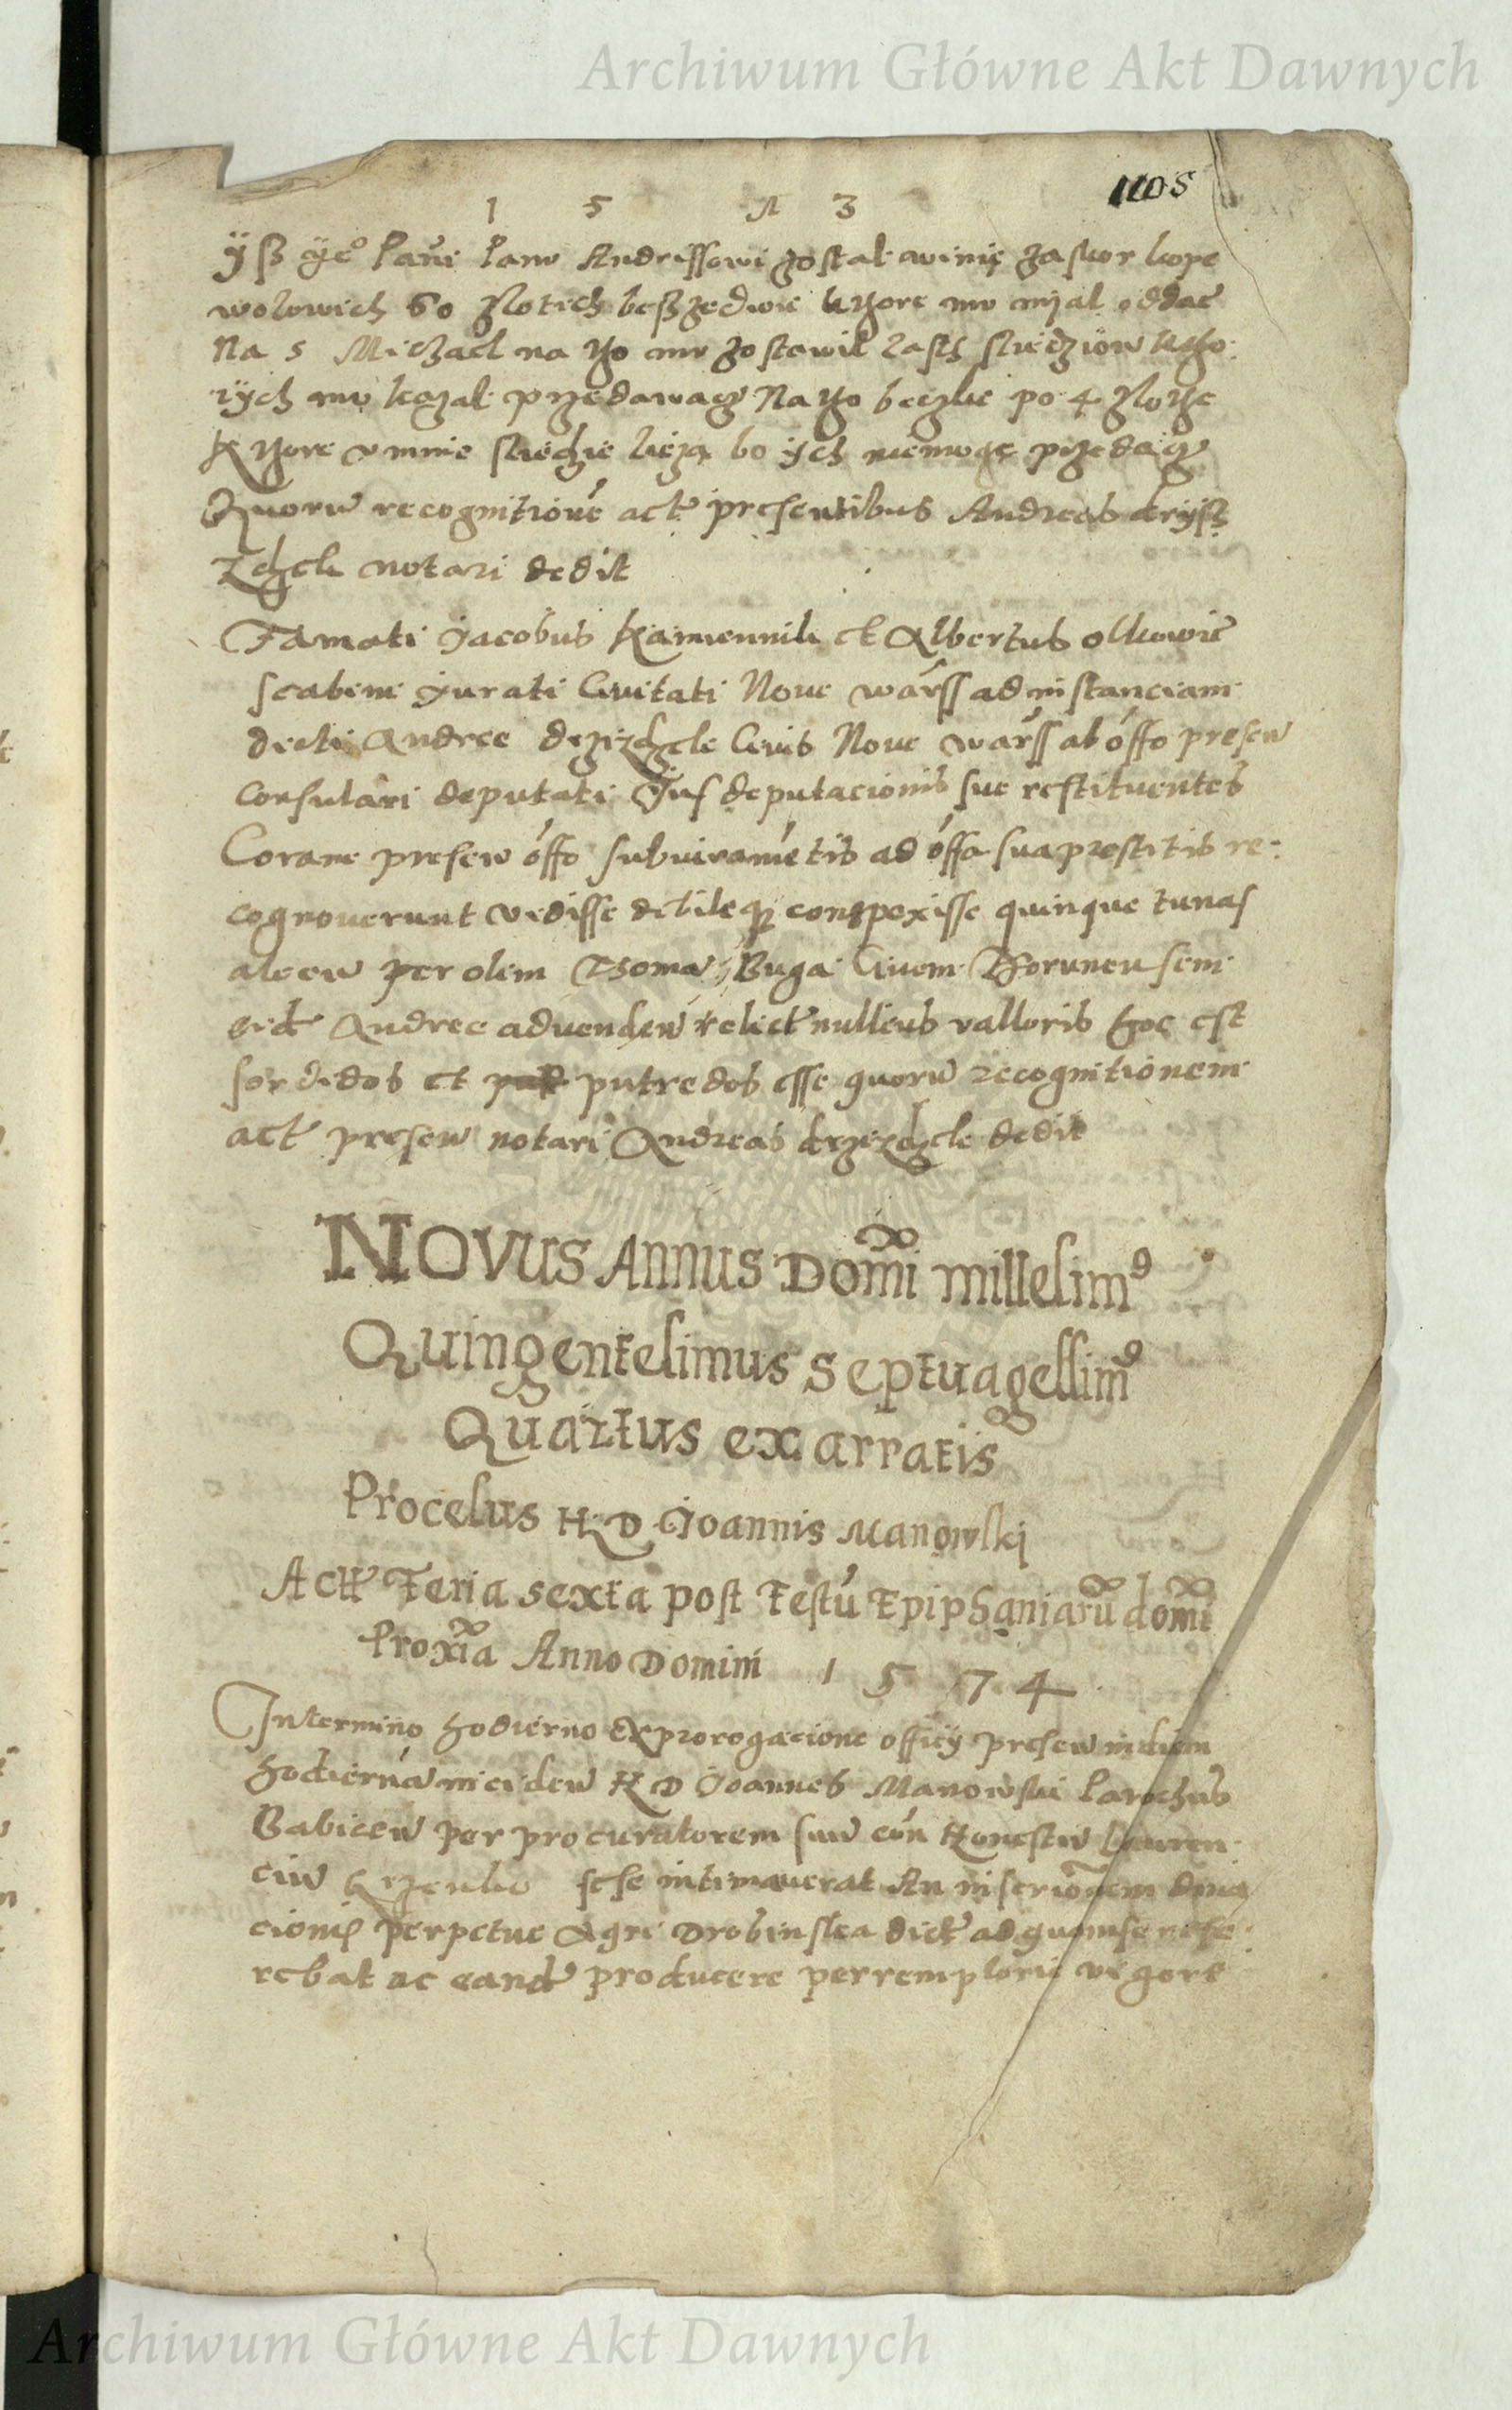 Archiwum Główne Akt Dawnych
1105
1 5 7 3
ÿß ÿe° Pavi Panu Andrissowi zostal winię za skor kope
wolowich 60 zlotich besz
Na S Miczael na tho mu zostawil
rÿch mu kazal przedawacz Na tho beczke po 4 zlothe
Kthore v mnie sliedzie lieza bo ÿch niemogę przedacz
Quorū recognitionē act presentibus Andreas
notari dedit
Famati Jacobus Kamiennik et Albertus olkowic
scabini jurati Civitati Nove warss ad instanciam
dicti Andree Civis Nove warss ab offo presen
Consulari deputati Jus deputacionis sue restituentes
Coram presen offo sub iuramētis ad offa sua prestitis re:
cognoverunt vidisse conspexisse quinque tunas
alecū per olim Thoma Buga Civem Thorunensem
eid Andree ad venden relict nullius valloris hoc est
sordidos et putredos esse quorū recognitionem
act presen notari Andreas dedit
Novus Annus Domi millesim9
Quingentesimus Septuagessim9
Quartus exarratis
Processus H D Joannis Manowski
Act Feria sexta post Festū Epiphaniarū domi
Proxīa Anno Domini 1 5 7 4
In termino hodierno ex prorogacione officÿ presen in diem
hodiernā inciden H D Joannes Manowski Parochus
Babicen per procuratorem suū cōn Honestū Lauren
ciū sese intimaverat An inscriptionem dona
cionis perpetue Agri Drobinska dict ad quam se refe:
rebat ac eand producere perremptorie vigore
Archiwum Główne Akt Dawnych